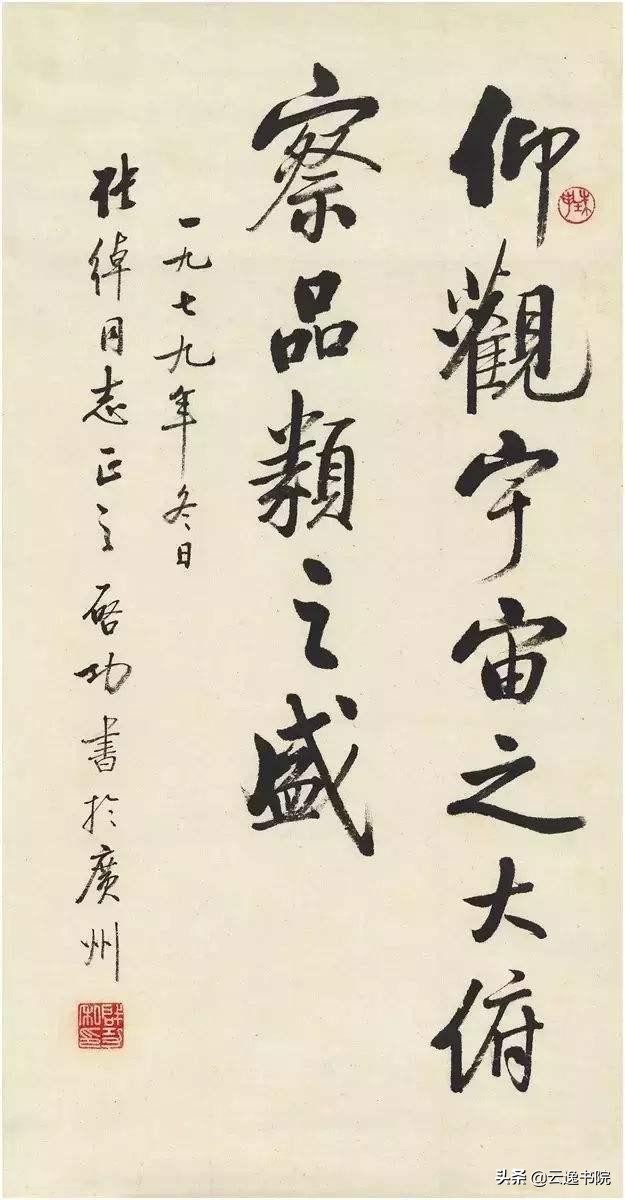 仰觀宇宙之大俯
察品類之盛
一九七九年冬日
張綽同志正之 啓功書於廣州
头条 @云逸书院